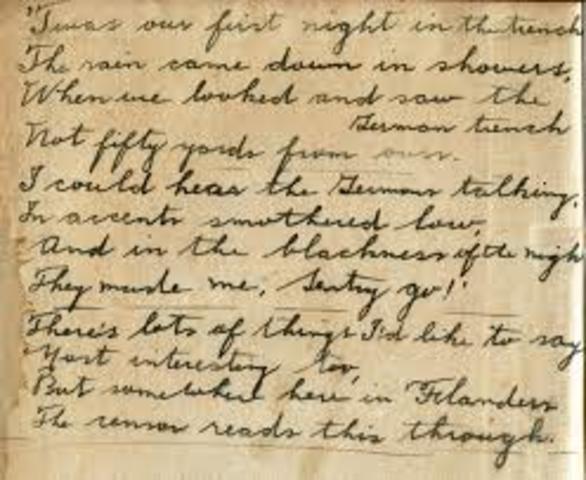 "Twas our first night in the trench
The rain came down in showers,
When we looked and saw the
German trench
Not fifty yards from ours.
I could hear the Germans talking,
In accents smothered low,
And in the blackness of the nigh
They made me, Sentry go!"
There's lots of things I'd like to say
Most interesting too,
But somewhere here in Flanders
The censor reads this through.